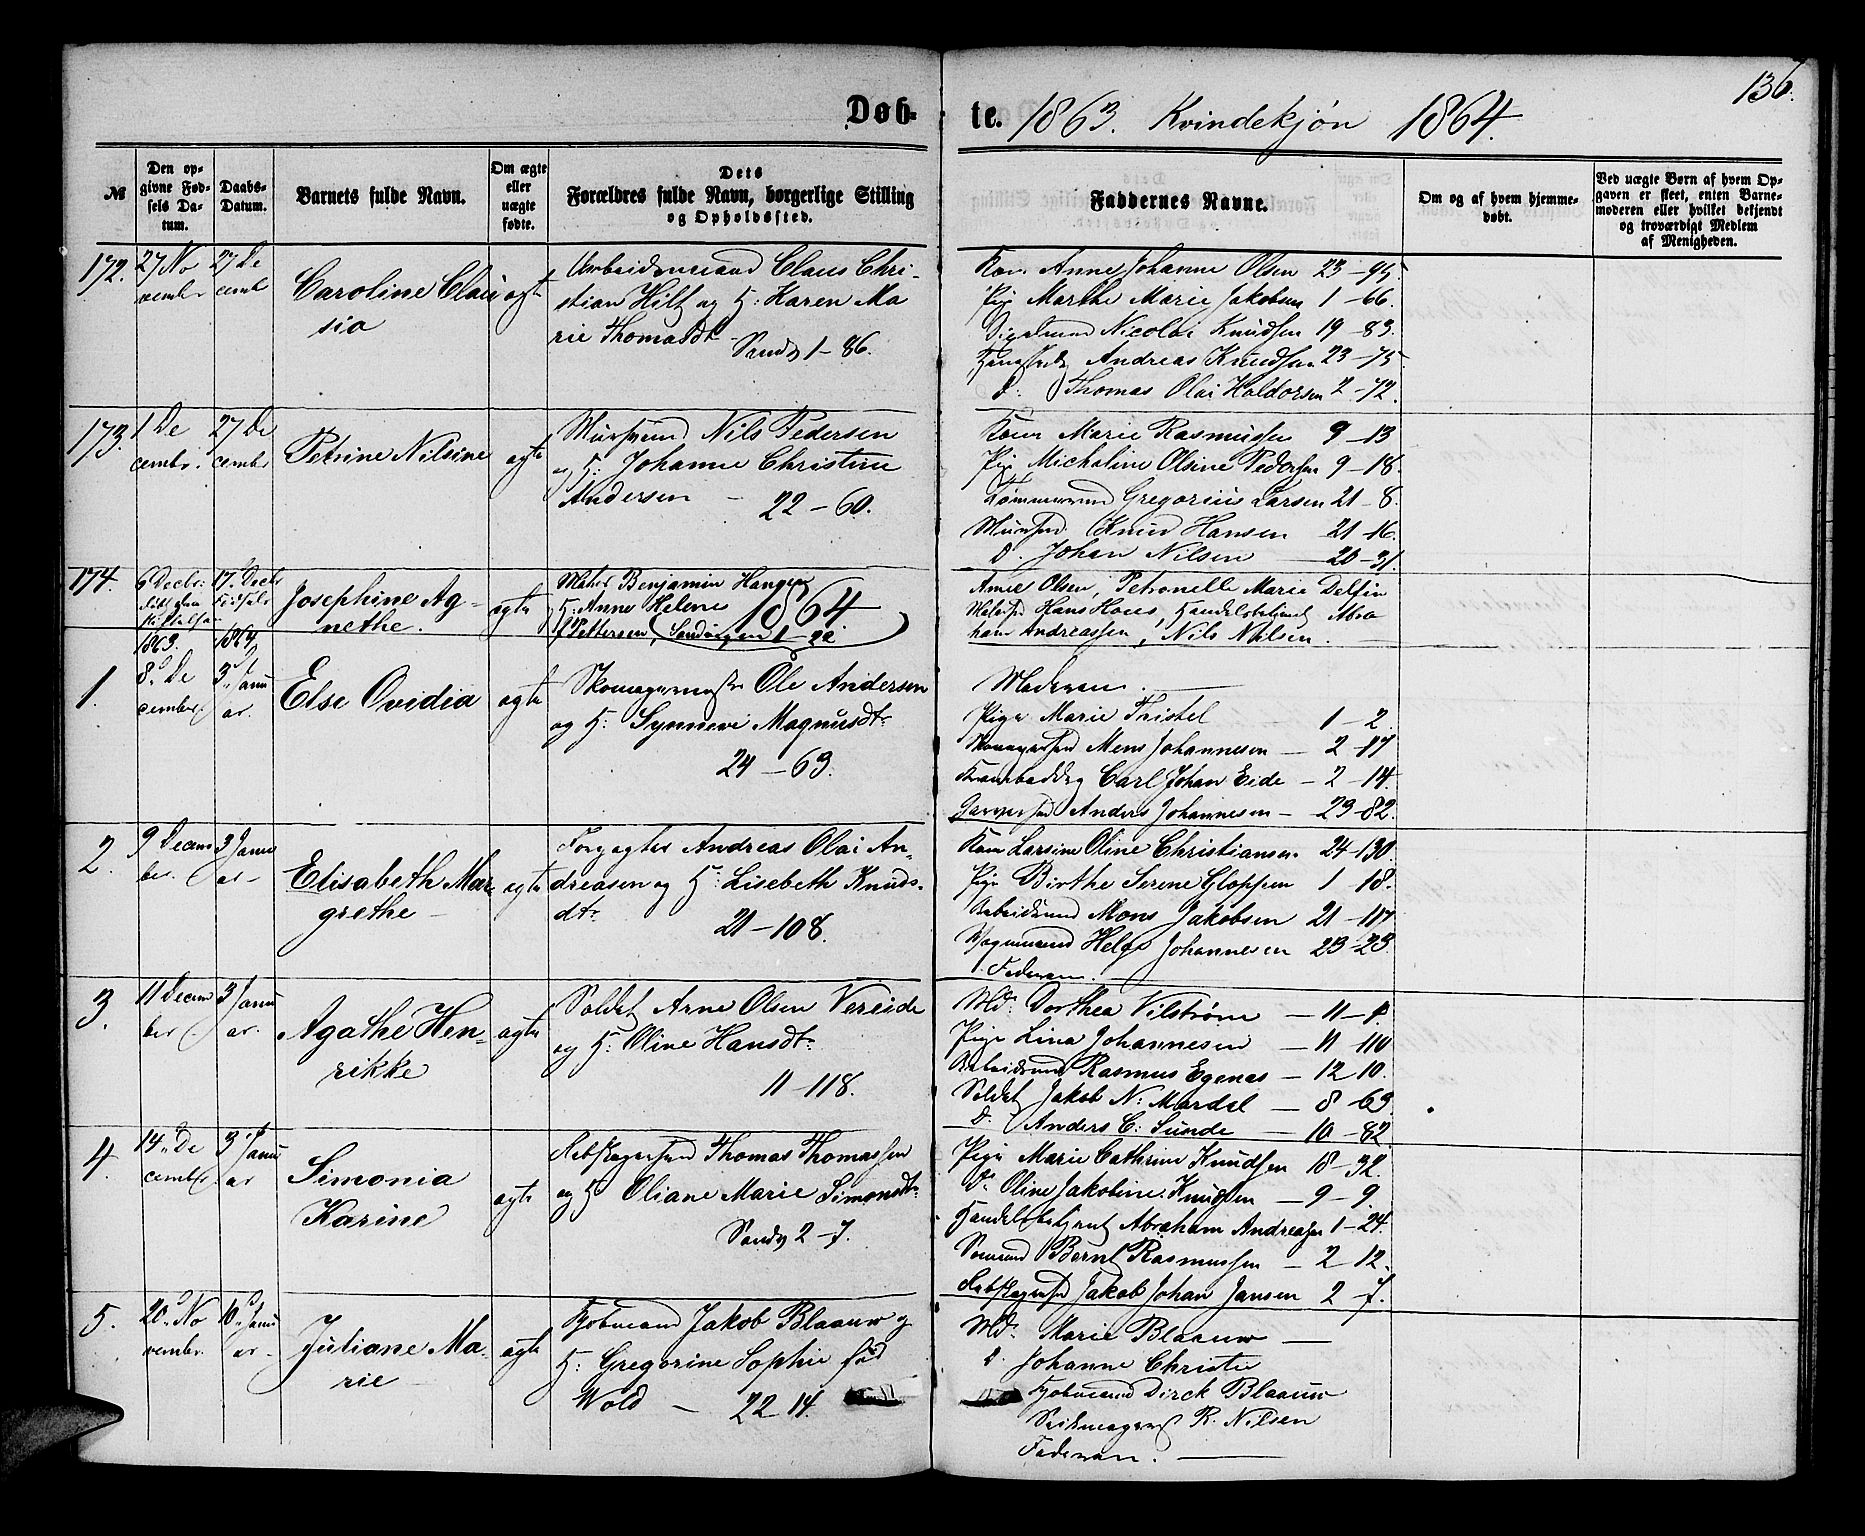 136.
Døb- te. 1863. Kvindekjøn 1864.
№
Den opgivne Fødsels Datum.
Daabs-Datum.
Barnets fulde Navn.
Om ægte eller uægte fødte.
Dets Forældres fulde Navn, borgerlige Stilling og Opholdssted.
Faddernes Navne.
Om og af hvem hjemmedøbt.
Ved uægte Børn af hvem Opgaven er skeet, enten Barnemoderen eller hvilket bekjendt og troværdigt Medlem af Menigheden.
172. 27 November 27 Decembr
Caroline Clausia
ægte
Arbeidsmand Claus Christian Hilt og H: Karen Marie Thomasdt
Sandv 1-86.
Kone Anne Johanne Olsen 23-95.
Pige Marthe Marie Jakobsen 1-66.
Nicolai Knudsen 19-83.
Andreas Knudsen 23-75.
D: Thomas Olai Haldorsen 2-72.
173. 1 Decembr. 27 Decembr
Petrine Nilsine
ægte
Mursvend Nils Pedersen
og H: Johanne Christine
Andersen - 22-60.
Kone Marie Rasmussen 9-13
Pige Micheline Olsine Pedersen 9-18.
Tømmermand Gregorius Larsen 21-8.
Mursvend Knud Hansen 21-16.
D. Johan Nilsen 20-31.
174. 6 Decbr: 17. Decbr
Josephine Agnethe.
ægte
Benjamin Hangen
H. Anne Helene
Pettersen, Sandvigen 1-22
1864
Anne Olsen, Petronelle Marie Delfin
Hans Haus, Handelsbetjent Abraham Andreassen, Nils Nilsen.
1863. 1864
1. 8d December 3d Januar.
Else Ovidia
ægte
Skomagermester Ole Andersen
og H: Synneve Magnusdtr
24-63.
Moderen.
Pige Marie Tristel 1-2
Skomagersvd Mens Johannesen - 2-17
Carl Johan Eide - 2-14.
Garversvd Anders Johannesen - 23-82.
2. 9 December. 3 Januar-
Elisabeth Margrethe -
ægte
Forpagter Andreas Olai Andreasen og H: Lisebeth Knudsdtr
21-108.
Kone Larsine Oline Christiansen 24-130.
Pige Birthe Serene Gloppen 1-18.
Arbeidsmd Mons Jakobsen 21-117.
Vognmand Helge Johannesen 23-23.
Faderen.
3. 11 December 3 Januar.
Agathe Henrikke
ægte
Soldat Arne Olsen Vereide
og H: Oline Hansdtr
11-118.
Md: Dorthea Vilstrøm - 11-1.
Pige Lina Johannesen - 11-110
Arbeidsmd Rasmus Egenæs - 12-10.
Soldat Jakob N: Mardal - 8-63.
D. Anders C: Sunde - 10-82.
4. 14de December 3d Januar
Simonia
Karine
ægte
Rebslagersvend Thomas Thomassen
og H. Oliane Marie Simonsdtr
Sandv 2-7.
Pige Marie Cathrine Knudsen 18-32.
D. Oline Jakobine Knudsen - 9-9.
Handelsbetjent Abraham Andreasen 1-24.
Bernt Rasmussen - 2-12.
Rebslagersvd Jakob Johan Jansen 2-7.
5. 20d November. 10d Januar.
Juliane Marie
ægte
Kjøbmand Jakob Blaauw og
H. Gregorine Sophie fød
Wold - 22-14.
Md: Marie Blaauw -
D. Johanne Christie
Kjøbmand Dirck Blaauw
R. Nilsen
Faderen.